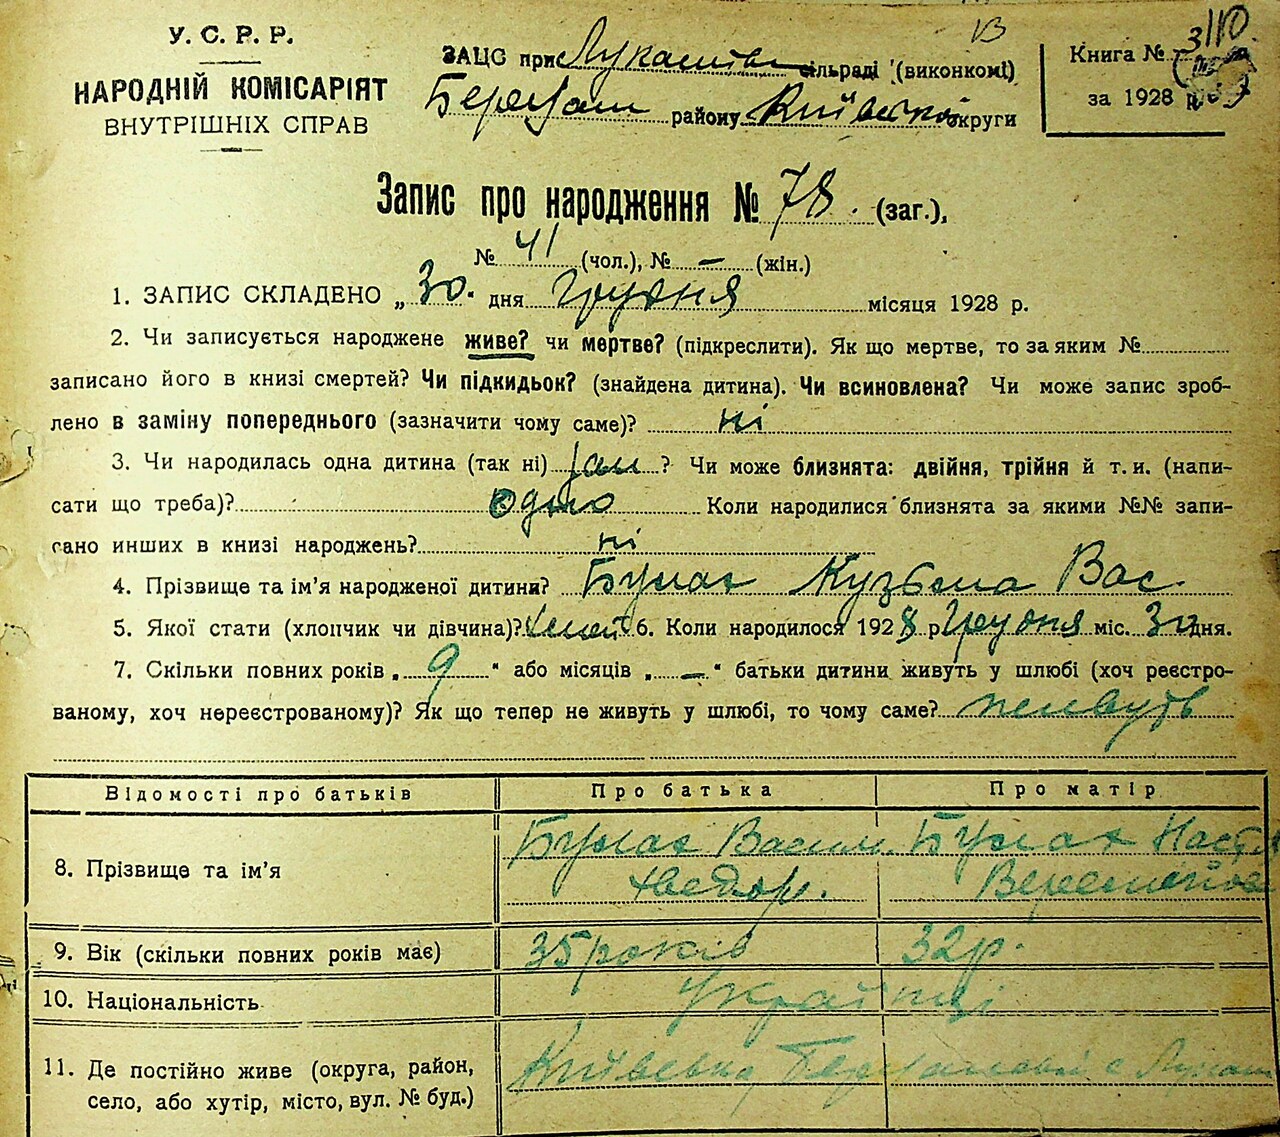 У. С. Р. Р.
НАРОДНІЙ КОМІСАРІЯТ
ВНУТРІШНІХ СПРАВ
ЗАЦС при Лукашів. сільраді (виконкомі)
Березан району Київської округи
Книга №
за 1928 р.
Запис про народження № 78. (заг.),
№ 41 (чол.), № – (жін.)
1. ЗАПИС СКЛАДЕНО „ 30. дня грудня місяця 1928 р.
2. Чи записується народжене живе? чи мертве? (підкреслити). Як що мертве, то за яким №
записано його в книзі смертей? Чи підкидьок? (знайдена дитина). Чи всиновлена? Чи може запис зроб-
лено в заміну попереднього (зазначити чому саме)? ні
3. Чи народилась одна дитина (так ні) так ? Чи може близнята: двійня, трійня й т. и. (напи-
сати що треба)? одно Коли народилися близнята за якими №№ запи-
сано инших в книзі народжень? ні
4. Прізвище та ім’я народженої дитини? Булах Кузьма Вас.
5. Якої стати (хлопчик чи дівчина)? 6. Коли народилося 1928 р Грудня міс. 30 дня.
7. Скільки повних років „ 9 “ або місяців „ – “ батьки дитини живуть у шлюбі (хоч реєстро-
ваному, хоч нереєстрованому)? Як що тепер не живуть у шлюбі, то чому саме? живуть
Відомості про батьків Про батька Про матір
8. Прізвище та ім’я Булах Васил. Хведор. Булах Настя
9. Вік (скільки повних років має) 35 років 32 р.
10. Національність Українці
11. Де постійно живе (округа, район,
село, або хутір, місто, вул. № буд.) Київська с Лукаш